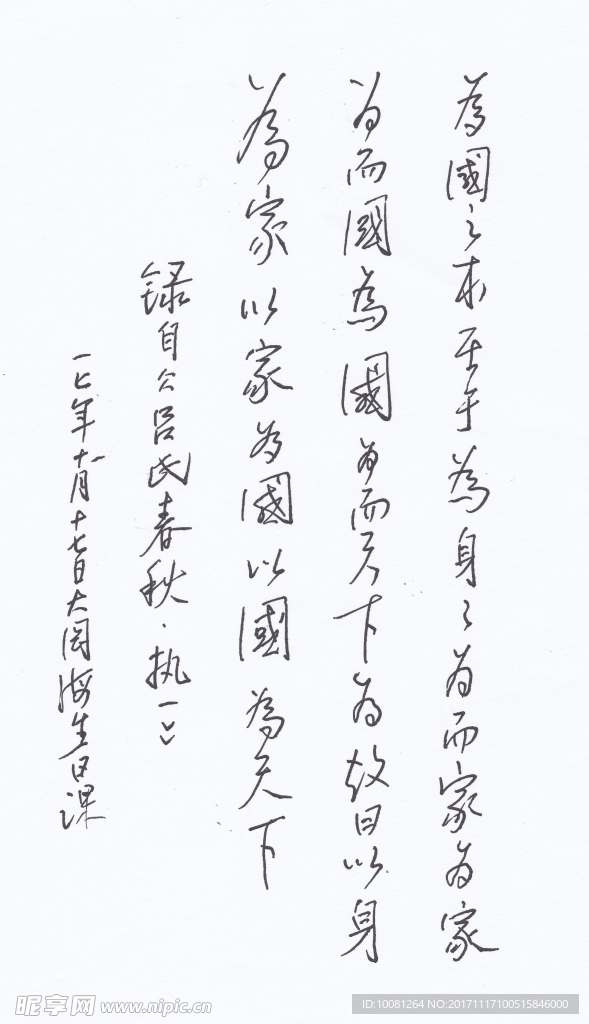 為國之本在于為身々為而家為家
為而國為國為而天下為故曰以身
為家以家為國以國為天下
録自《吕氏春秋·执一》
一七年十一月十七日海生日课
昵享网 www.nipic.cn
ID:10081264 NO:20171117100515846000